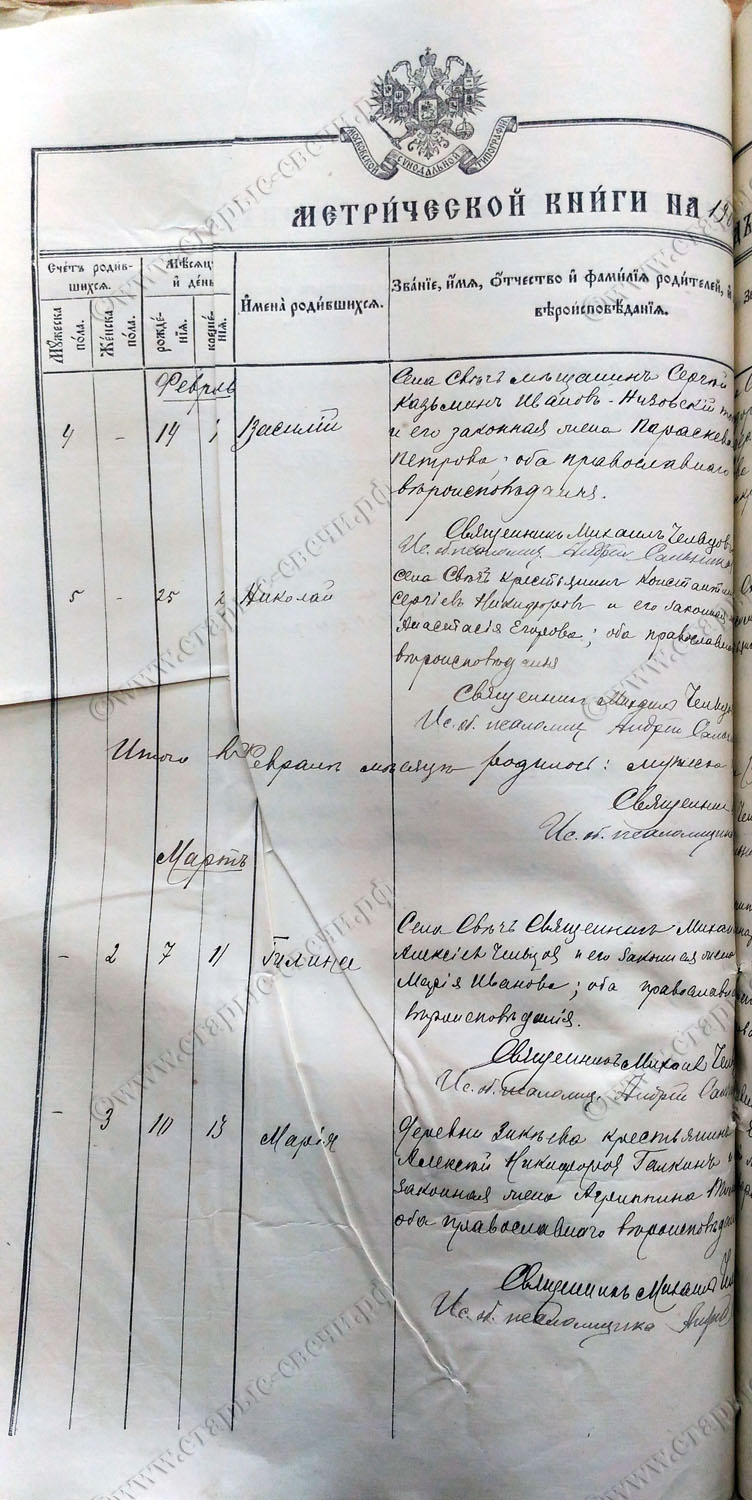 МОСКОВСКОЙ СѴНОДАЛЬНОЙ ТИПОГРАФІИ
МЕТРИ́ЧЕСКОЙ КНИ́ГИ НА 190
Сче́тъ роди́в-
шихся.
Му́жеска по́ла.
Же́нска по́ла.
Мѣ́сяцъ
и҆ де́нь
рожде́-
нїѧ.
креще́-
нїѧ.
И҆мена̀ роди́вшихся.
Зва́нїе, и҆́мѧ, ѻ҆́тчество и҆ фами́лїѧ роди́телей, и҆
вѣроисповѣ́данїѧ.
Февраль
4 - 14 Василій
Села Свѣчъ мѣщанинъ Сергѣй
Казьминъ Ивановъ-Низовскій
и его законная жена Параскева
Петрова; оба православнаго
вѣроисповѣданія.
Священникъ Михаилъ Чельцовъ
Ис. об. псаломщ. Андрей
5 - 25 2 Николай
Села Свѣчъ крестьянинъ Константинъ
Сергіевъ Никифоровъ и его законная
Анастасія Егорова; оба православна
вѣроисповѣданія
Священникъ Михаилъ Чельцо
Ис. об. псаломщ. Андрей
Итого въ Февралѣ мѣсяцѣ родилось: мужеска
Священник
Ис. об. псаломщика
Мартъ
- 2 7 11 Галина
Села Свѣчъ Священникъ Михаил
Алексіевъ Чельцовъ и его законная жена
Марія Иванова; оба православна
вѣроисповѣданія.
Священникъ Михаил Чель
Ис. об. псаломщ. Андрей
- 3 10 13 Марія
Деревни Зикѣева крестьянинъ
Алексѣй Никифоровъ Галкинъ и
законная жена Агриппина
оба православнаго вѣроисповѣдан
Священникъ Михаил Че
Ис. об. псаломщика Андре
©www.старые-свечи.рф